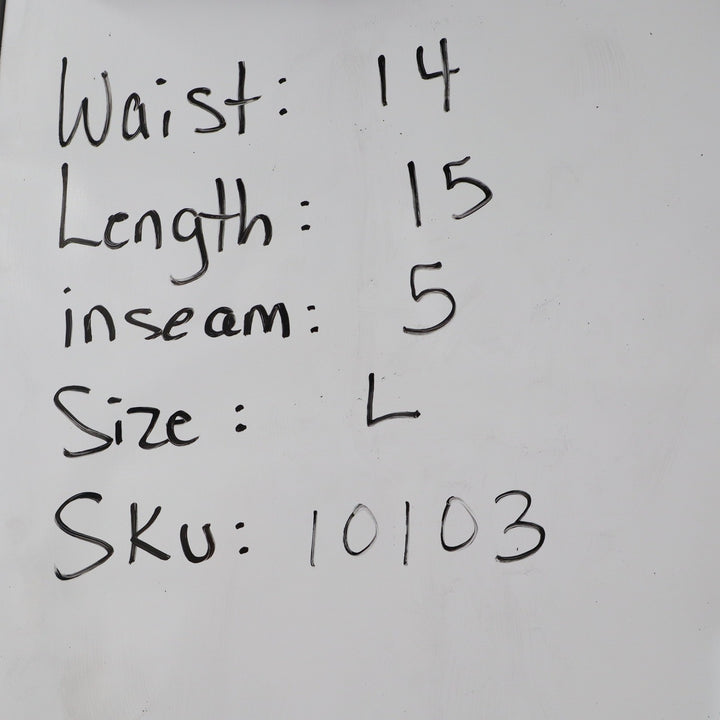 Waist: 14
Length: 15
inseam: 5
Size: L
SKU: 10103